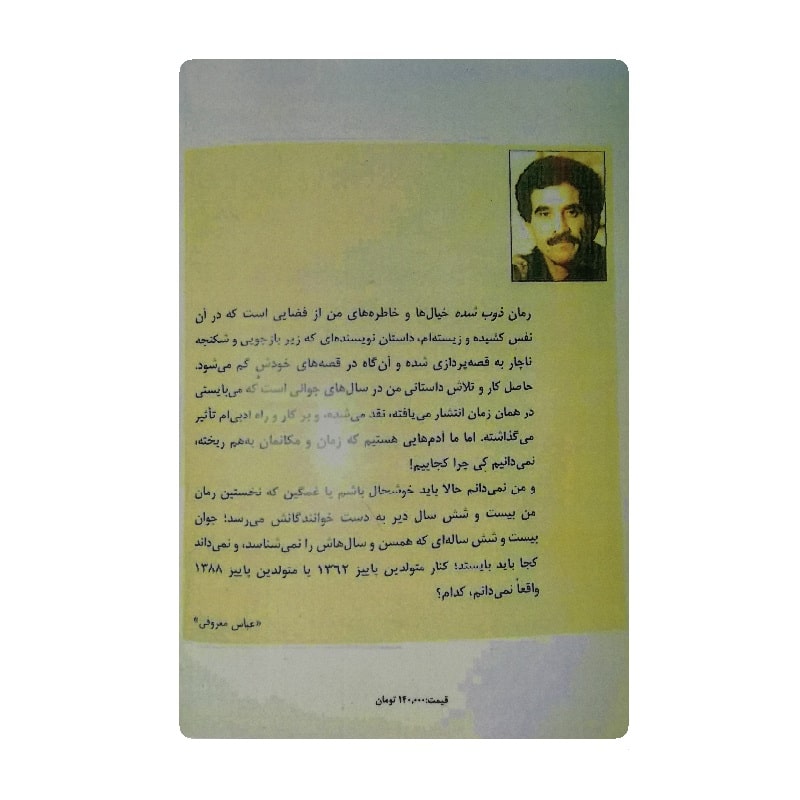 رمان ذوب شده خیال‌ها و خاطره‌های من از فضایی است که در آن
نفس کشیده و زیسته‌ام، داستان نویسنده‌ای که زیر بازجویی و شکنجه
ناچار به قصه‌پردازی شده و آن‌گاه در قصه‌های خودش گم می‌شود.
حاصل کار و تلاش داستانی من در سال‌های جوانی است که می‌بایستی
در همان زمان انتشار می‌یافته، نقد می‌شده، و بر کار و راه ادبی‌ام تأثیر
می‌گذاشته. اما ما آدم‌هایی هستیم که زمان و مکانمان به‌هم ریخته،
نمی‌دانیم کی چرا کجاییم!
و من نمی‌دانم حالا باید خوشحال باشم یا غمگین که نخستین رمان
من بیست و شش سال دیر به دست خوانندگانش می‌رسد؛ جوان
بیست و شش ساله‌ای که همسن و سال‌هاش را نمی‌شناسد، و نمی‌داند
کجا باید بایستد؛ کنار متولدین پاییز ۱۳۶۲ یا متولدین پاییز ۱۳۸۸
واقعاً نمی‌دانم، کدام؟
«عباس معروفی»
قیمت: ۱۴۰,۰۰۰ تومان